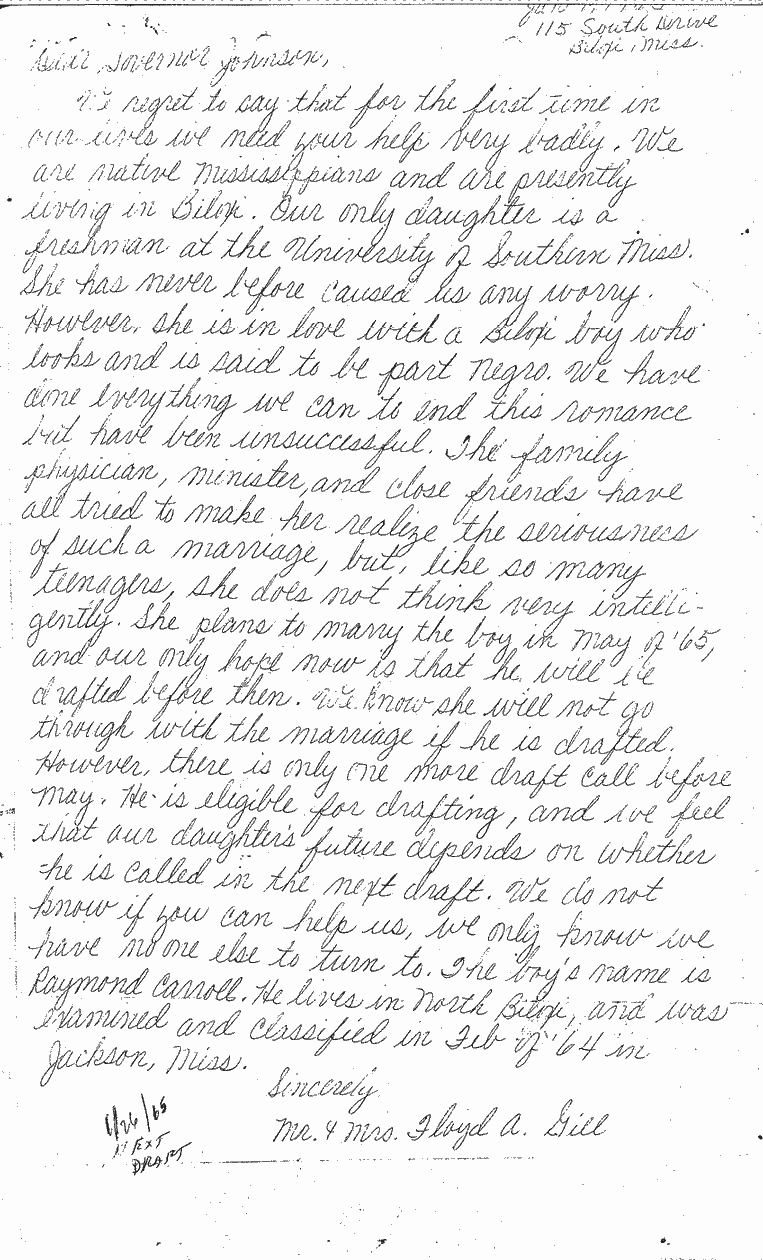 115 South Drive
Biloxi, Miss.
Dear Governor Johnson,
We regret to say that for the first time in
our lives we need your help very badly. We
are native Mississippians and are presently
living in Biloxi. Our only daughter is a
freshman at the University of Southern Miss.
She has never before caused us any worry.
However, she is in love with a Biloxi boy who
looks and is said to be part Negro. We have
done everything we can to end this romance
but have been unsuccessful. The family
physician, minister, and close friends have
all tried to make her realize the seriousness
of such a marriage, but, like so many
teenagers, she does not think very intelli-
gently. She plans to marry the boy in May of '65,
and our only hope now is that he will be
drafted before then. We know she will not go
through with the marriage if he is drafted.
However, there is only one more draft call before
May. He is eligible for drafting, and we feel
that our daughter's future depends on whether
he is called in the next draft. We do not
know if you can help us, we only know we
have no one else to turn to. The boy's name is
Raymond Carroll. He lives in North Biloxi, and was
examined and classified in Feb of '64 in
Jackson, Miss.
Sincerely
Mr. & Mrs. Floyd A. Gill
1/26/65
NEXT
DRAFT